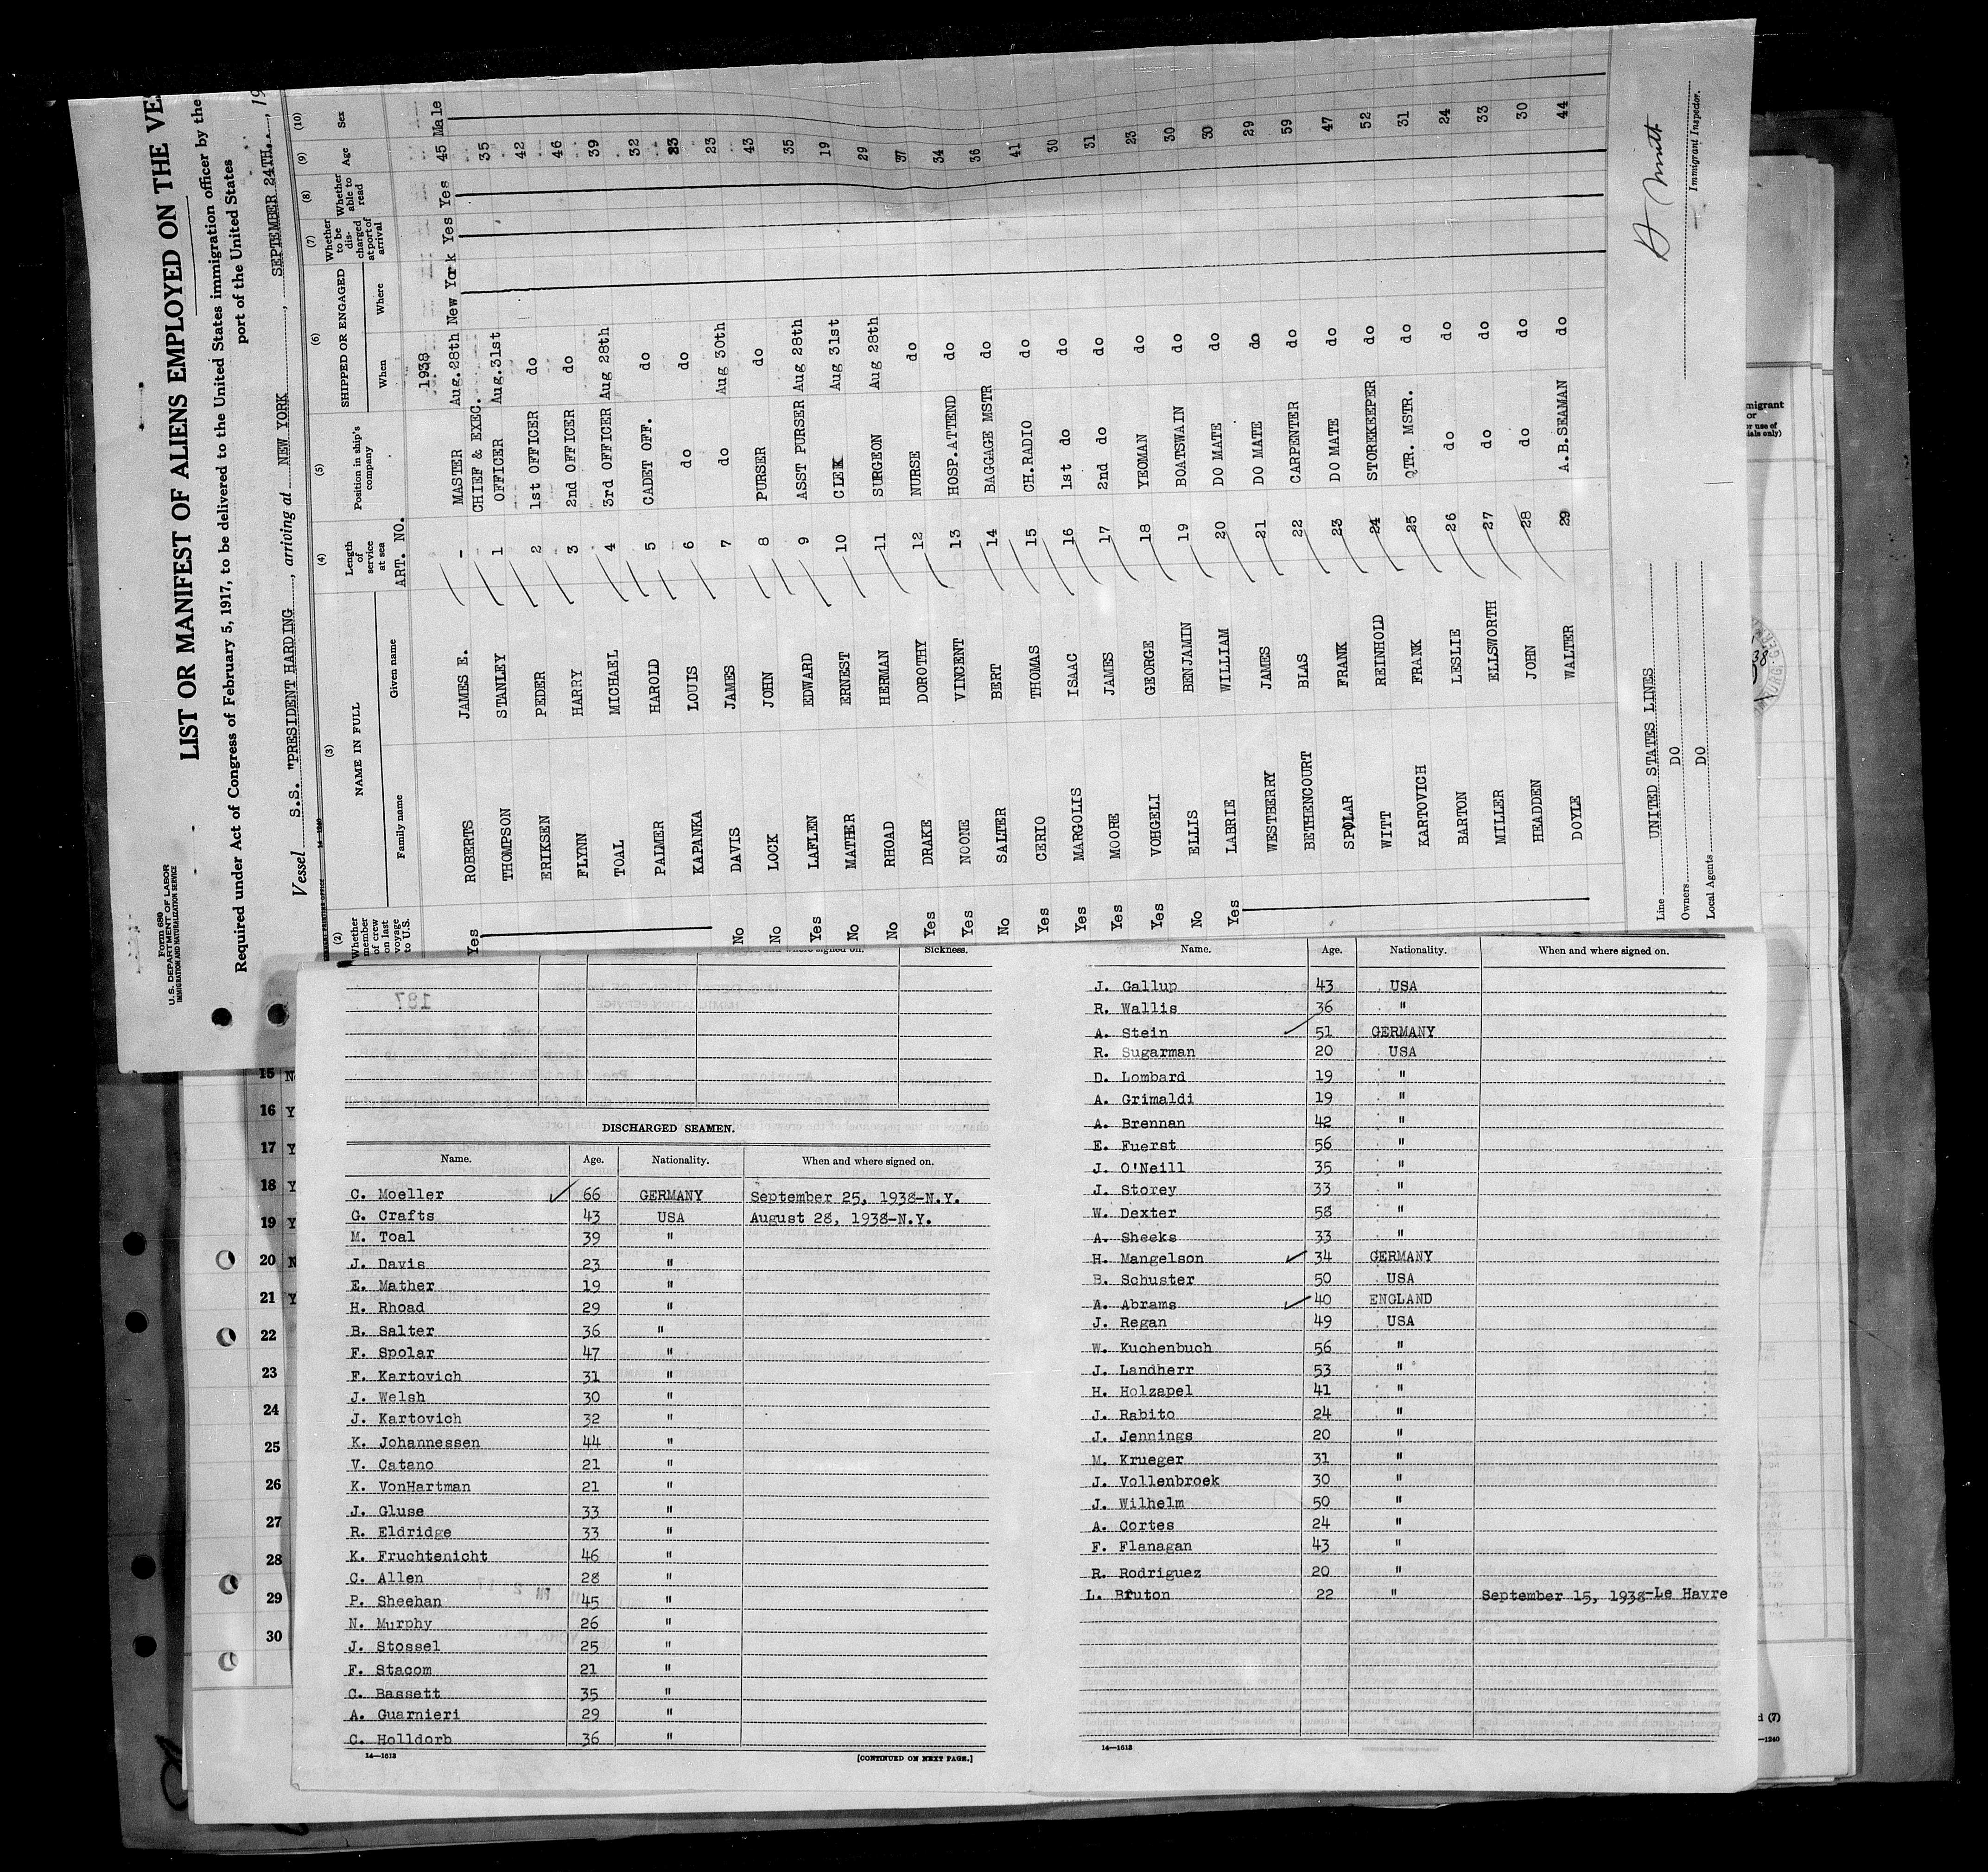 Form 680
U. S. DEPARTMENT OF LABOR
IMMIGRATION AND NATURALIZATION SERVICE
LIST OR MANIFEST OF ALIENS EMPLOYED ON THE
Required under Act of Congress of February 5, 1917, to be delivered to the United States immigration officer by the
port of the United States
Vessel S.S. "PRESIDENT HARDING, arriving at NEW YORK, SEPTEMBER 24TH., 19
(2) (3) (4) (5) (6) (7) (8) (9) (10)
Whether member of crew on last voyage to U.S. NAME IN FULL Family name Given name Length of service at sea Position in ship's company SHIPPED OR ENGAGED When Where Whether to be discharged at port of arrival Whether able to read Age Sex
ART. NO. 1938
Yes ROBERTS JAMES E. - MASTER Aug.28th New York Yes Yes 45 Male
THOMPSON STANLEY 1 CHIEF & EXEC. OFFICER Aug.31st 35
ERIKSEN PEDER 2 1st OFFICER do 42
FLYNN HARRY 3 2nd OFFICER do 46
TOAL MICHAEL 4 3rd OFFICER Aug 28th 39
PALMER HAROLD 5 CADET OFF. do 32
KAPANKA LOUIS 6 do do 23
No DAVIS JAMES 7 do Aug 30th 23
No LOCK JOHN 8 PURSER do 43
Yes LAFLEN EDWARD 9 ASST PURSER Aug 28th 35
No MATHER ERNEST 10 CLEK Aug 31st 19
No RHOAD HERMAN 11 SURGEON Aug 28th 29
Yes DRAKE DOROTHY 12 NURSE do 37
Yes NOONE VINCENT 13 HOSP.ATTEND do 34
No SALTER BERT 14 BAGGAGE MSTR do 36
Yes CERIO THOMAS 15 CH.RADIO do 41
Yes MARGOLIS ISAAC 16 1st do do 30
Yes MOORE JAMES 17 2nd do do 31
Yes VOHGELI GEORGE 18 YEOMAN do 23
No ELLIS BENJAMIN 19 BOATSWAIN do 30
Yes LABRIE WILLIAM 20 DO MATE do 30
WESTBERRY JAMES 21 DO MATE do 29
BETHENCOURT BLAS 22 CARPENTER do 59
SPOLAR FRANK 23 DO MATE do 47
WITT REINHOLD 24 STOREKEEPER do 52
KARTOVICH FRANK 25 QTR. MSTR. do 31
BARTON LESLIE 26 do do 24
MILLER ELLSWORTH 27 do do 33
HEADDEN JOHN 28 do do 30
DOYLE WALTER 29 A.B.SEAMAN do 44
Line UNITED STATES LINES
Owners DO
Local Agents DO
Immigrant Inspector.
15 N
16 Y
17 Y
18 Y
19 Y
20 N
21 Y
22
23
24
25
26
27
28
29
30
Sickness.
DISCHARGED SEAMEN.
Name. Age. Nationality. When and where signed on.
C. Moeller 66 GERMANY September 25, 1938-N.Y.
G. Crafts 43 USA August 28, 1938-N.Y.
M. Toal 39 "
J. Davis 23 "
E. Mather 19 "
H. Rhoad 29 "
B. Salter 36 "
F. Spolar 47 "
F. Kartovich 31 "
J. Welsh 30 "
J. Kartovich 32 "
K. Johannessen 44 "
V. Catano 21 "
K. VonHartman 21 "
J. Gluse 33 "
R. Eldridge 33 "
K. Fruchtenicht 46 "
C. Allen 28 "
P. Sheehan 45 "
N. Murphy 26 "
J. Stossel 25 "
F. Stacom 21 "
C. Bassett 35 "
A. Guarnieri 29 "
C. Holldorb 36 "
14—1613 [CONTINUED ON NEXT PAGE.]
Name. Age. Nationality. When and where signed on.
J. Gallup 43 USA
R. Wallis 36 "
A. Stein 51 GERMANY
R. Sugarman 20 USA
D. Lombard 19 "
A. Grimaldi 19 "
A. Brennan 42 "
E. Fuerst 56 "
J. O'Neill 35 "
J. Storey 33 "
W. Dexter 58 "
A. Sheeks 33 "
H. Mangelson 34 GERMANY
B. Schuster 50 USA
A. Abrams 40 ENGLAND
J. Regan 49 USA
W. Kuchenbuch 56 "
J. Landherr 53 "
H. Holzapel 41 "
J. Rabito 24 "
J. Jennings 20 "
M. Krueger 31 "
J. Vollenbroek 30 "
J. Wilhelm 50 "
A. Cortes 24 "
F. Flanagan 43 "
R. Rodriguez 20 "
L. Bruton 22 " September 15, 1938-Le Havre
14—1613